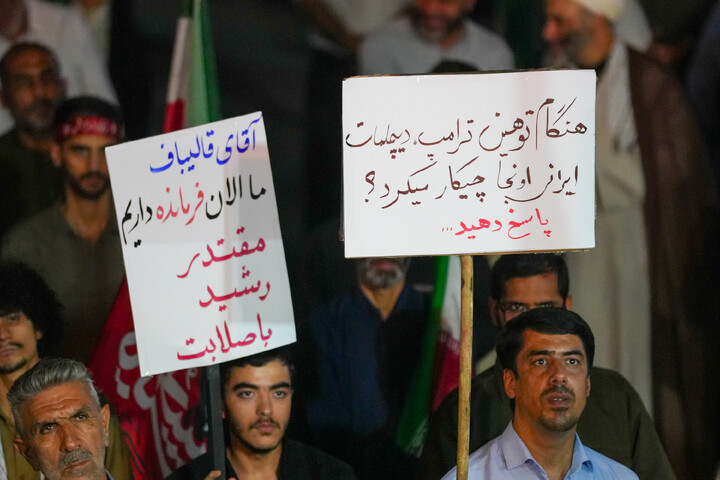 آقای قالیباف
ما الان فرمانده داریم
مقتدر
رشید
باصلابت
هنگام توهین ترامپ، دیپلمات
ایرانی اونجا چیکار میکرد؟
پاسخ دهید...